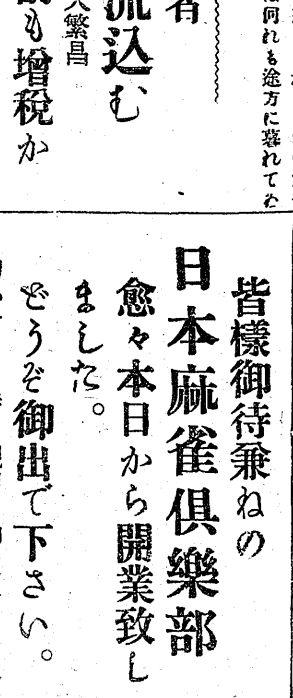 は何れも途方に暮れてゐ
者
流込む
大繁昌
も増税か
皆樣御待兼ねの
日本麻雀倶樂部
愈々本日から開業致し
ました。
どうぞ御出で下さい。